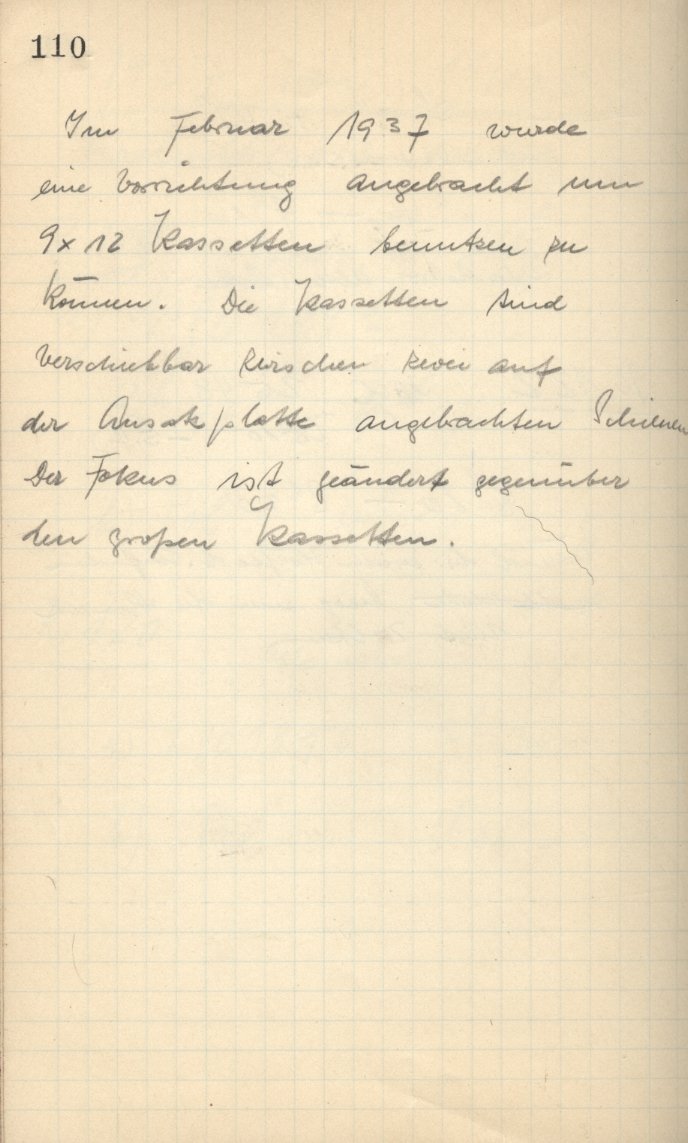 110
Im Februar 1937 wurde
eine Vorrichtung angebracht um
9x12 Kassetten benutzen zu
können. Die Kassetten sind
verschiebbar zwischen zwei auf
der Ansatzplatte angebrachten Schienen
Der Fokus ist geändert gegenüber
den großen Kassetten.